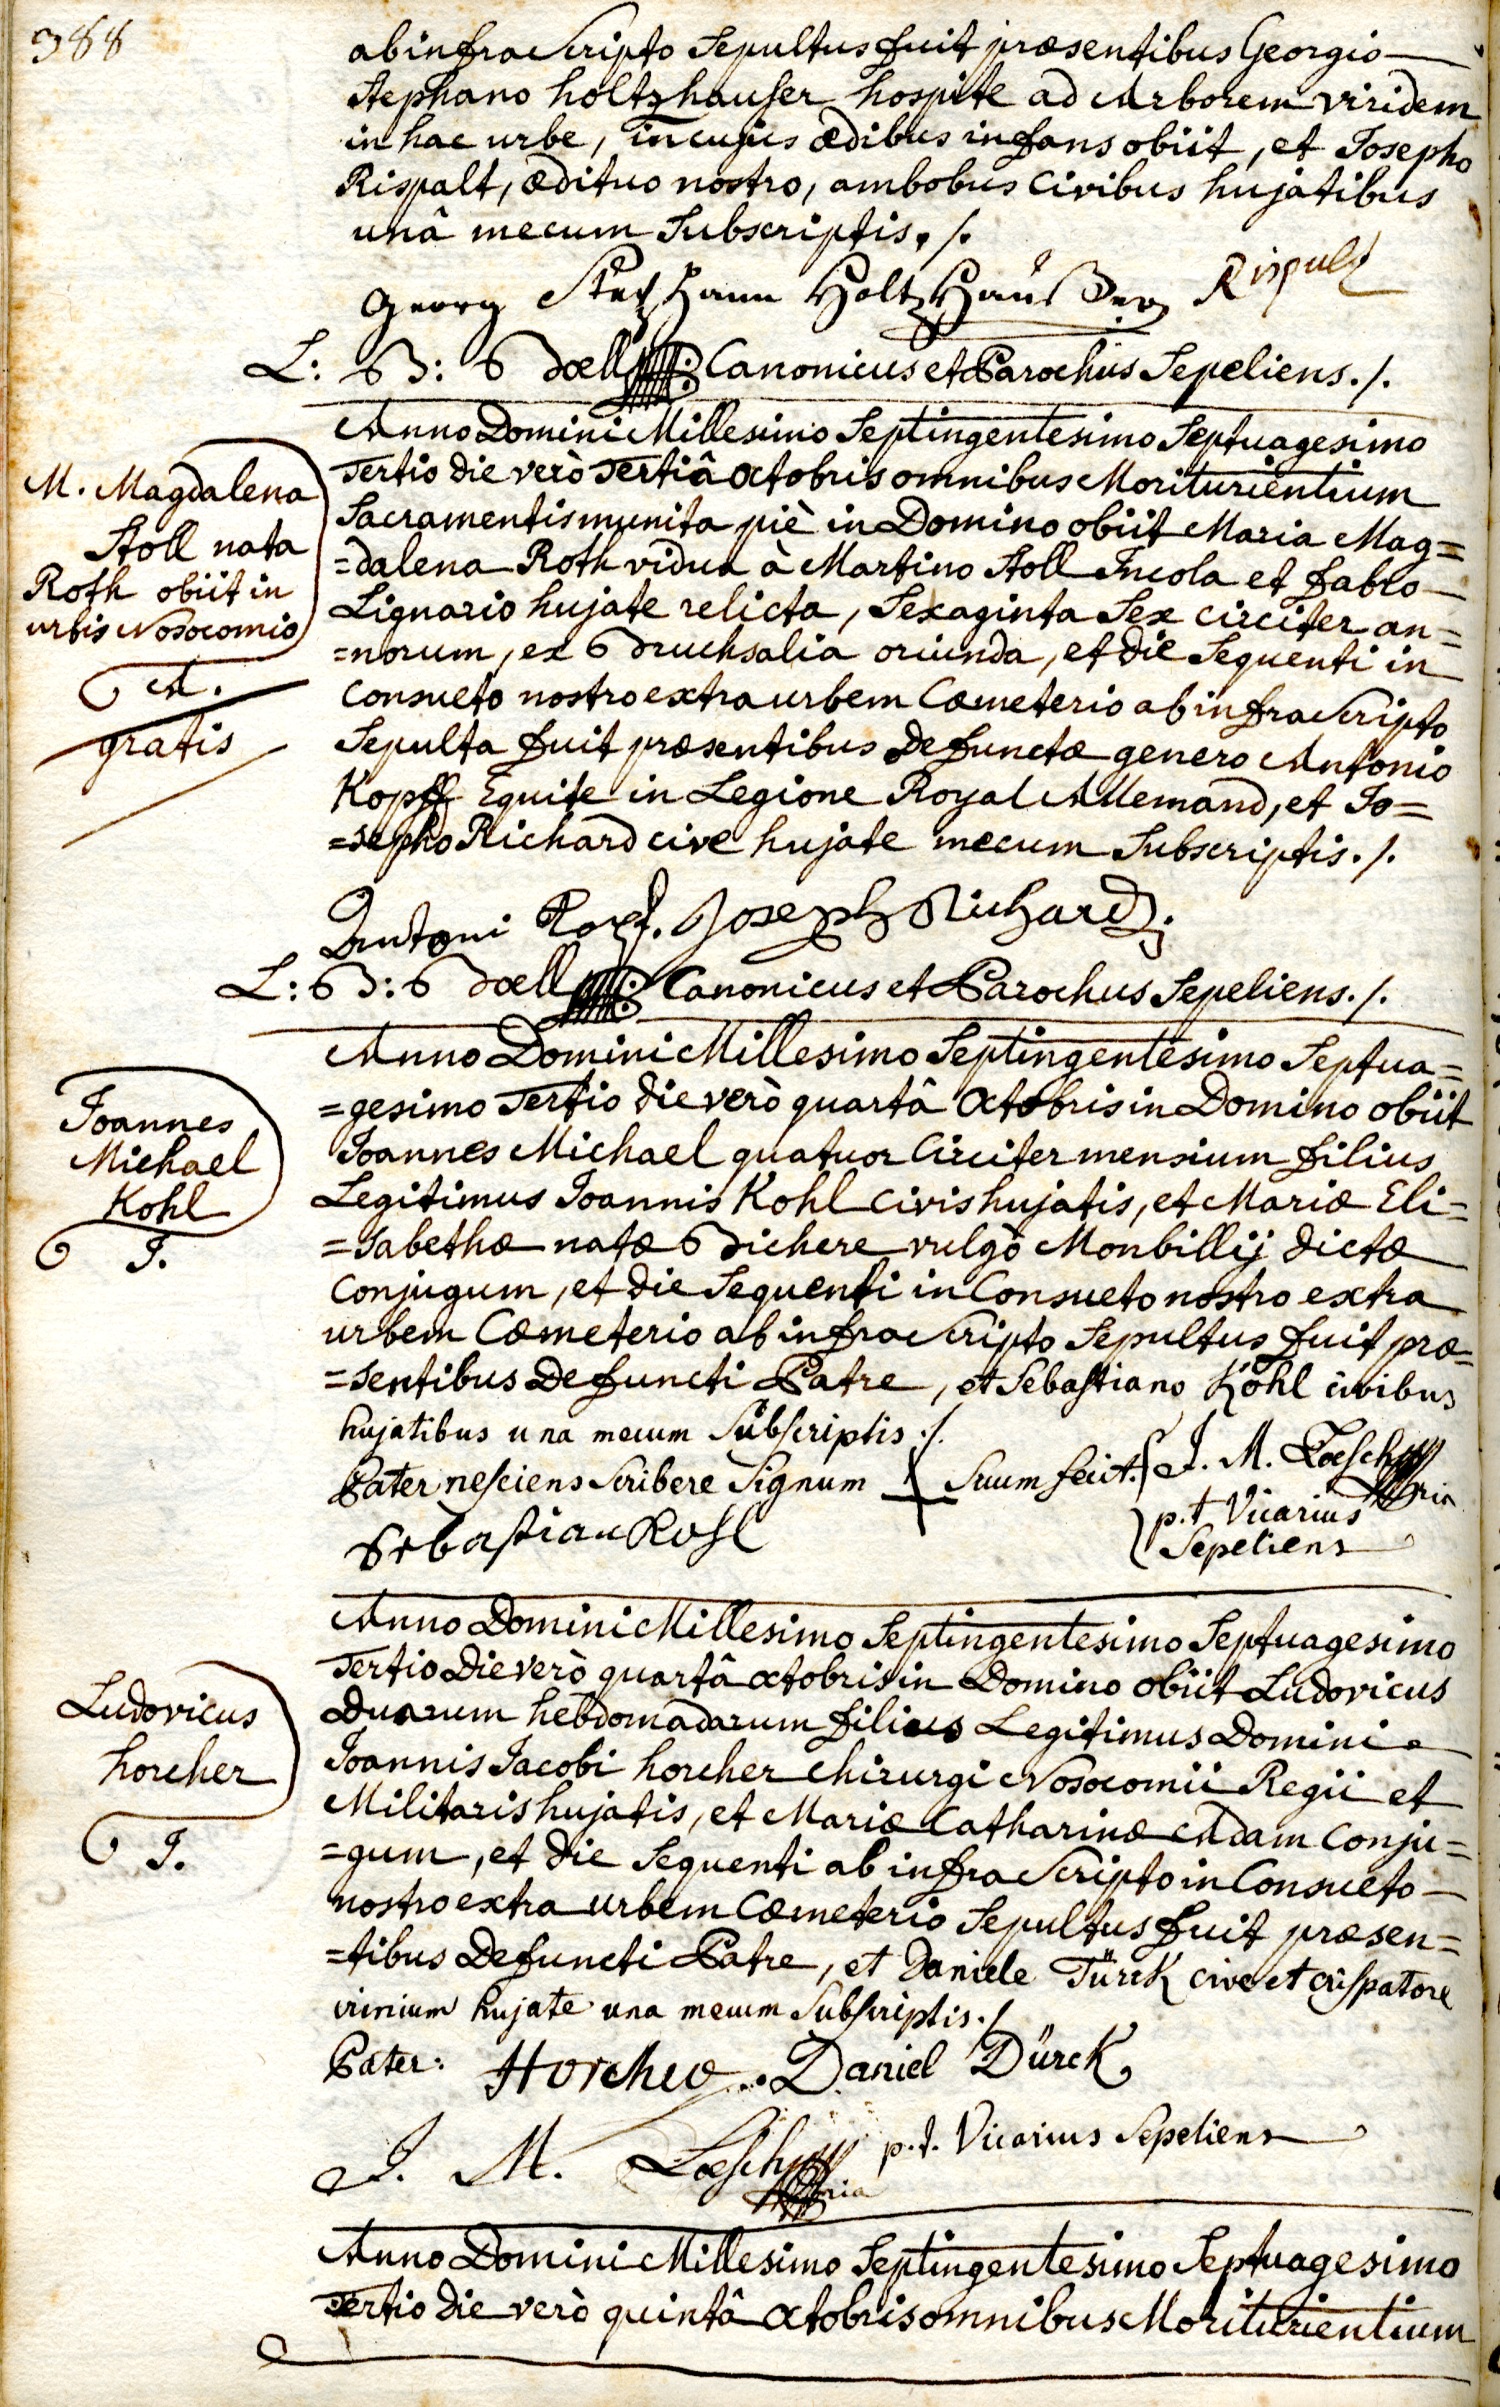 388
ab infra Scripto Sepultus fuit præsentibus Georgio
Stephano holtzhauser hospite ad Arborem viridem
in hac urbe, in cujus ædibus infans obiit, et Josepho
Rispalt, ædituo nostro, ambobus Civibus hujatibus
unâ mecum Subscriptis. /.
Georg Stephann Holtz Haußer Rispalt
L: B: Boell Canonicus et Parochus Sepeliens. /.
M. Magdalena
Stoll nata
Roth obiit in
urbis Nosocomio
A.
gratis
Anno Domini Millesimo Septingentesimo Septuagesimo
Tertio die verò Tertiâ Octobris omnibus Moriturientium
Sacramentis munita piè in Domino obiit Maria Mag=
=dalena Roth vidua à Martino Stoll Incola et fabro
Lignario hujate relicta, Sexaginta Sex circiter an=
=norum, ex Bruchsalia oriunda, et die Sequenti in
Consueto nostro extra urbem Cœmeterio ab infra Scripto
Sepulta fuit præsentibus Defunctæ genero Antonio
Kopff Equite in Legione Royal Allemand, et Jo=
=sepho Richard cive hujate mecum Subscriptis. /.
Antoni Kopf. Joseph Richard
L: B: Boell Canonicus et Parochus Sepeliens. /.
Joannes
Michael
Kohl
J.
Anno Domini Millesimo Septingentesimo Septua=
=gesimo Tertio die verò quartâ Octobris in Domino obiit
Joannes Michael quatuor Circiter mensium filius
Legitimus Joannis Kohl Civis hujatis, et Mariæ Eli=
=sabethæ natæ Bichere vulgò Monbillij dictæ
Conjugum, et die Sequenti in Consueto nostro extra
urbem Cœmeterio ab infra Scripto Sepultus fuit præ=
=sentibus Defuncti Patre, et Sebastiano Kohl civibus
hujatibus una mecum Subscriptis. /.
Pater nesciens Scribere Signum + Suum fecit. J. M. Loesch
p.t Vicarius
Sepeliens
Sebastian Kohl
Ludovicus
horcher
J.
Anno Domini Millesimo Septingentesimo Septuagesimo
Tertio Die verò quartâ Octobris in Domino obiit Ludovicus
Duarum hebdomadarum filius Legitimus Domini
Joannis Jacobi horcher Chirurgi Nosocomii Regii et
Militaris hujatis, et Mariæ Catharinæ Adam Conju=
=gum, et die Sequenti ab infra Scripto in Consueto
nostro extra urbem Cœmeterio Sepultus fuit præsen=
=tibus Defuncti Patre, et Daniele Türck cive et crispatore
crinium hujate una mecum Subscriptis. /.
Pater: Horcher Daniel Dürck
J. M. Loesch p.t. Vicarius Sepeliens
Anno Domini Millesimo Septingentesimo Septuagesimo
Tertio die verò quintâ Octobris omnibus Moriturientium